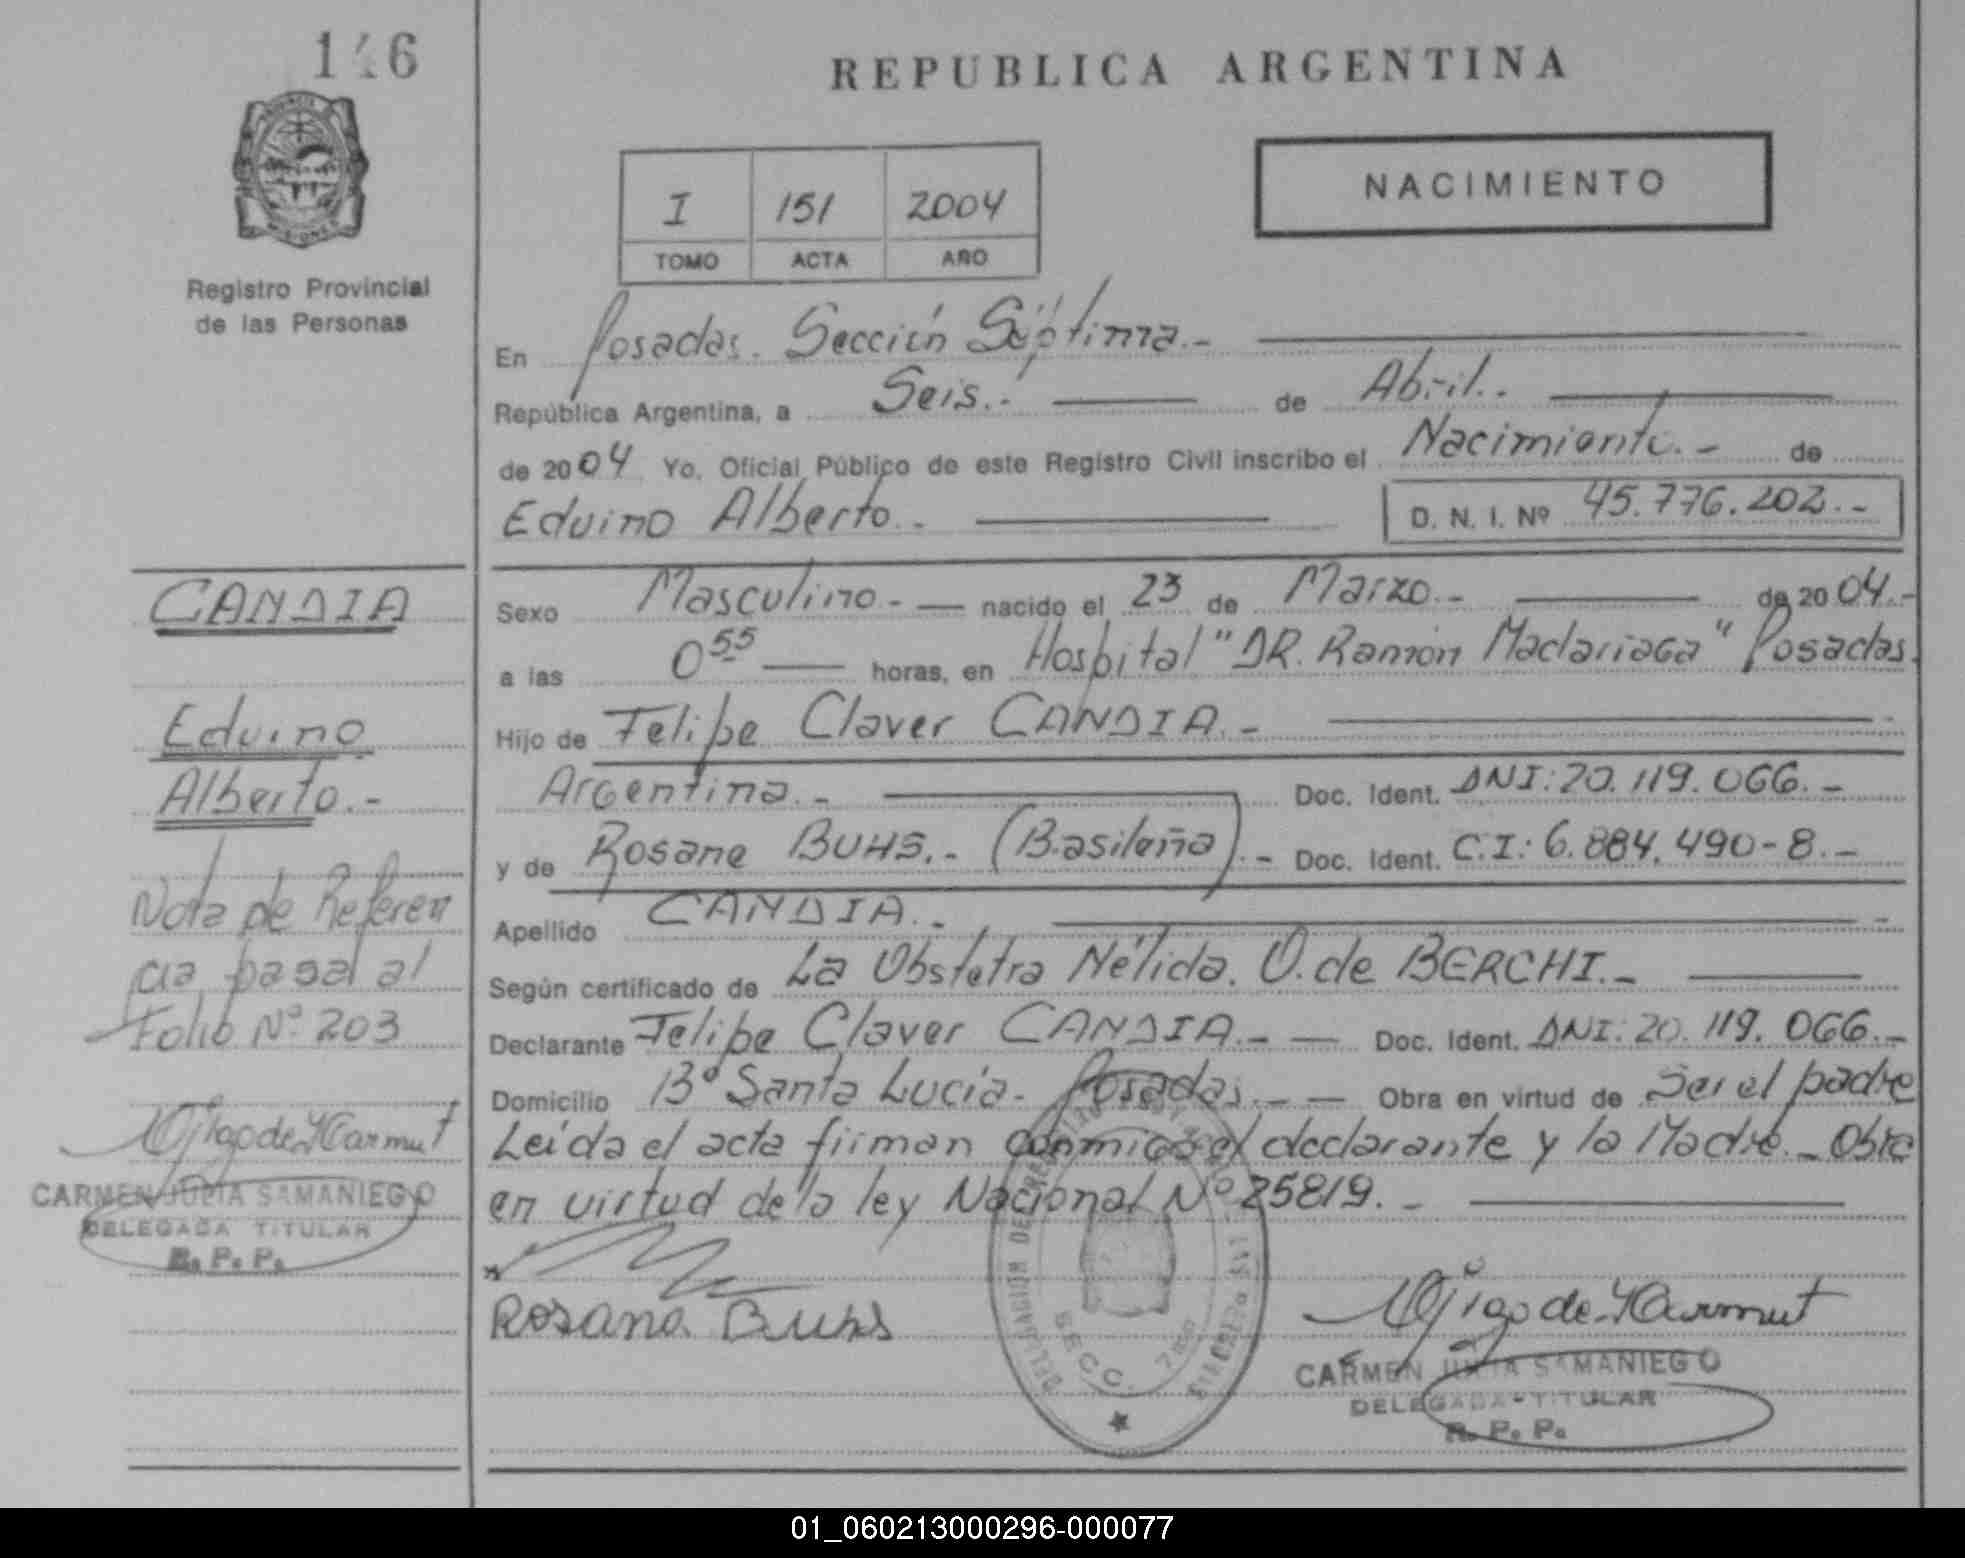 146
REPUBLICA ARGENTINA
I 151 2004
TOMO ACTA AÑO
NACIMIENTO
MISIONES
Registro Provincial
de las Personas
En Posadas. Sección Séptima.-
República Argentina, a Seis.- de Abril.-
de 2004 Yo, Oficial Público de este Registro Civil inscribo el Nacimiento.- de
Eduino Alberto.- D. N. I. Nº 45.776.202.-
CANDIA
Eduino
Alberto.-
Nota de Referen
cia pasal al
Folio Nº 203
CARMEN JULIA SAMANIEGO
DELEGADA TITULAR
R. P. P.
Sexo Masculino.- nacido el 23 de Marzo.- de 2004.-
a las 0 55 horas, en Hospital "DR. Ramón Madariaga" Posadas.
Hijo de Felipe Claver CANDIA.-
Argentina.- Doc. Ident. DNI: 20.119.066.-
y de Rosane BUHS.- (Brasileña).- Doc. Ident. C.I: 6.884.490-8.-
Apellido CANDIA.-
Según certificado de La Obstetra Nélida. O. de BERCHI.-
Declarante Felipe Claver CANDIA.- Doc. Ident. DNI: 20.119.066.-
Domicilio Bº Santa Lucía- Posadas.- Obra en virtud de Ser el padre
Leída el acta firman conmigo el declarante y la Madre.- Obre
en virtud de la ley Nacional Nº 25819.-
Rosana Buhs
SECC. 7
CARMEN JULIA SAMANIEGO
DELEGADA-TITULAR
R. P. P.
01_060213000296-000077